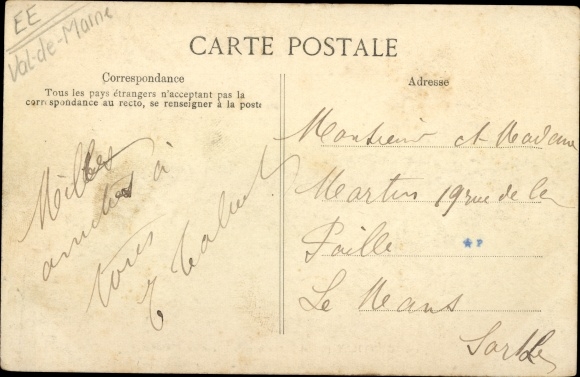 EE
Val-de-Marne
CARTE POSTALE
Correspondance
Tous les pays étrangers n'acceptant pas la
correspondance au recto, se renseigner à la poste
Milles
amitiés à
tous
Adresse
Monsieur et Madame
Martin 19 rue de la
Paille
Le Mans
Sarthe